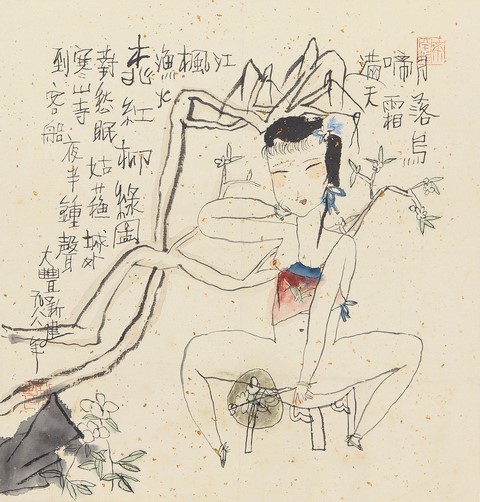 月落烏
啼霜
滿天
江
楓
漁火
桃紅柳綠圖
對愁眠姑蘇城外
寒山寺夜半鐘聲
到客船
大豐新建